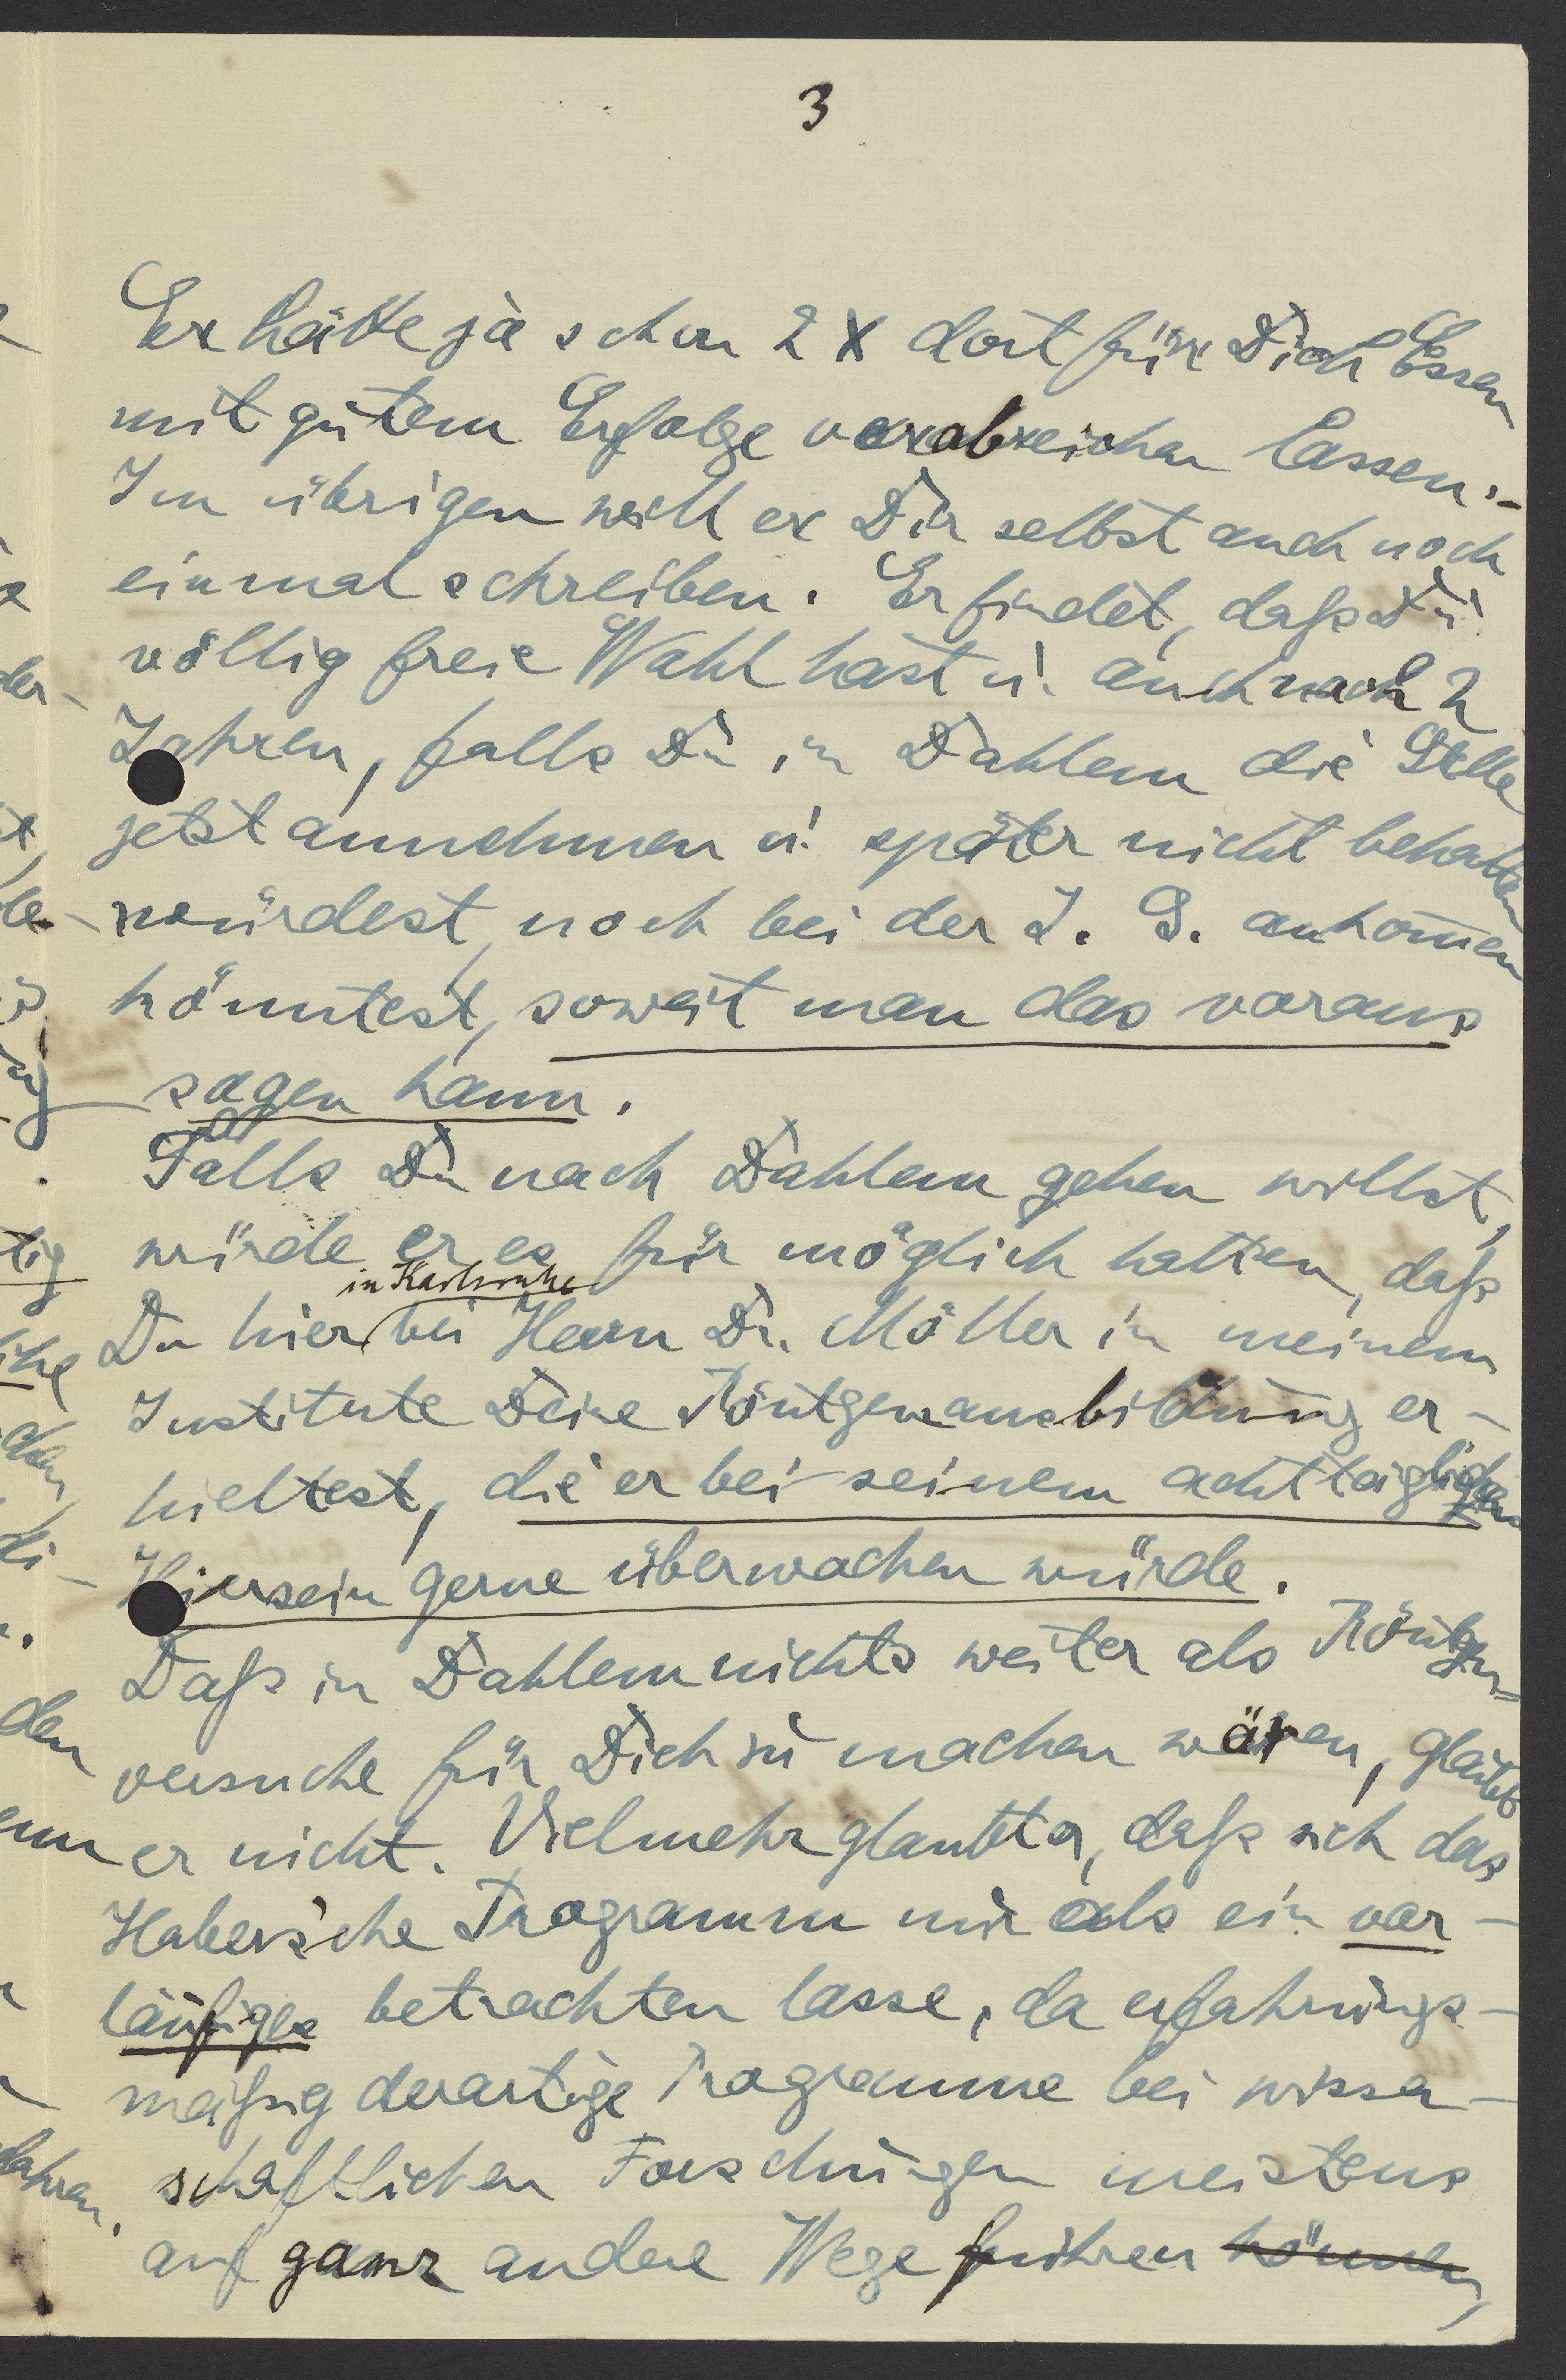 3
Er hätte ja schon 2 x dort für Dich Essen
mit gutem Erfolge verabreichen lassen.–
Im übrigen will er Dir selbst auch noch
einmal schreiben. Er findet, daß Du
völlig freie Wahl hast u. auch nach 2
Jahren, falls Du in Dahlem die Stelle
jetzt annehmen u. später nicht behalten
würdest, noch bei der I. G. ankom̄en
könntest, soweit man das voraus
sagen kann.
Falls Du nach Dahlem gehen willst,
würde er es für möglich halten, daß
in Karlsruhe
Du hier bei Herrn Dr. Möller in meinem
Institute Deine Röntgenausbildung er-
hieltest, die er bei seinem achttägigen
Hiersein gerne überwachen würde.
Daß in Dahlem nichts weiter als Röntgen-
versuche für Dich zu machen wären, glaubt
er nicht. Vielmehr glaubt er, daß sich das
Haber'sche Programm nur als ein vor-
läufiges betrachten lasse, da erfahrungs-
mäßig derartige Programme bei wissen-
schaftlichen Forschungen meistens
auf ganz andere Wege führen können,